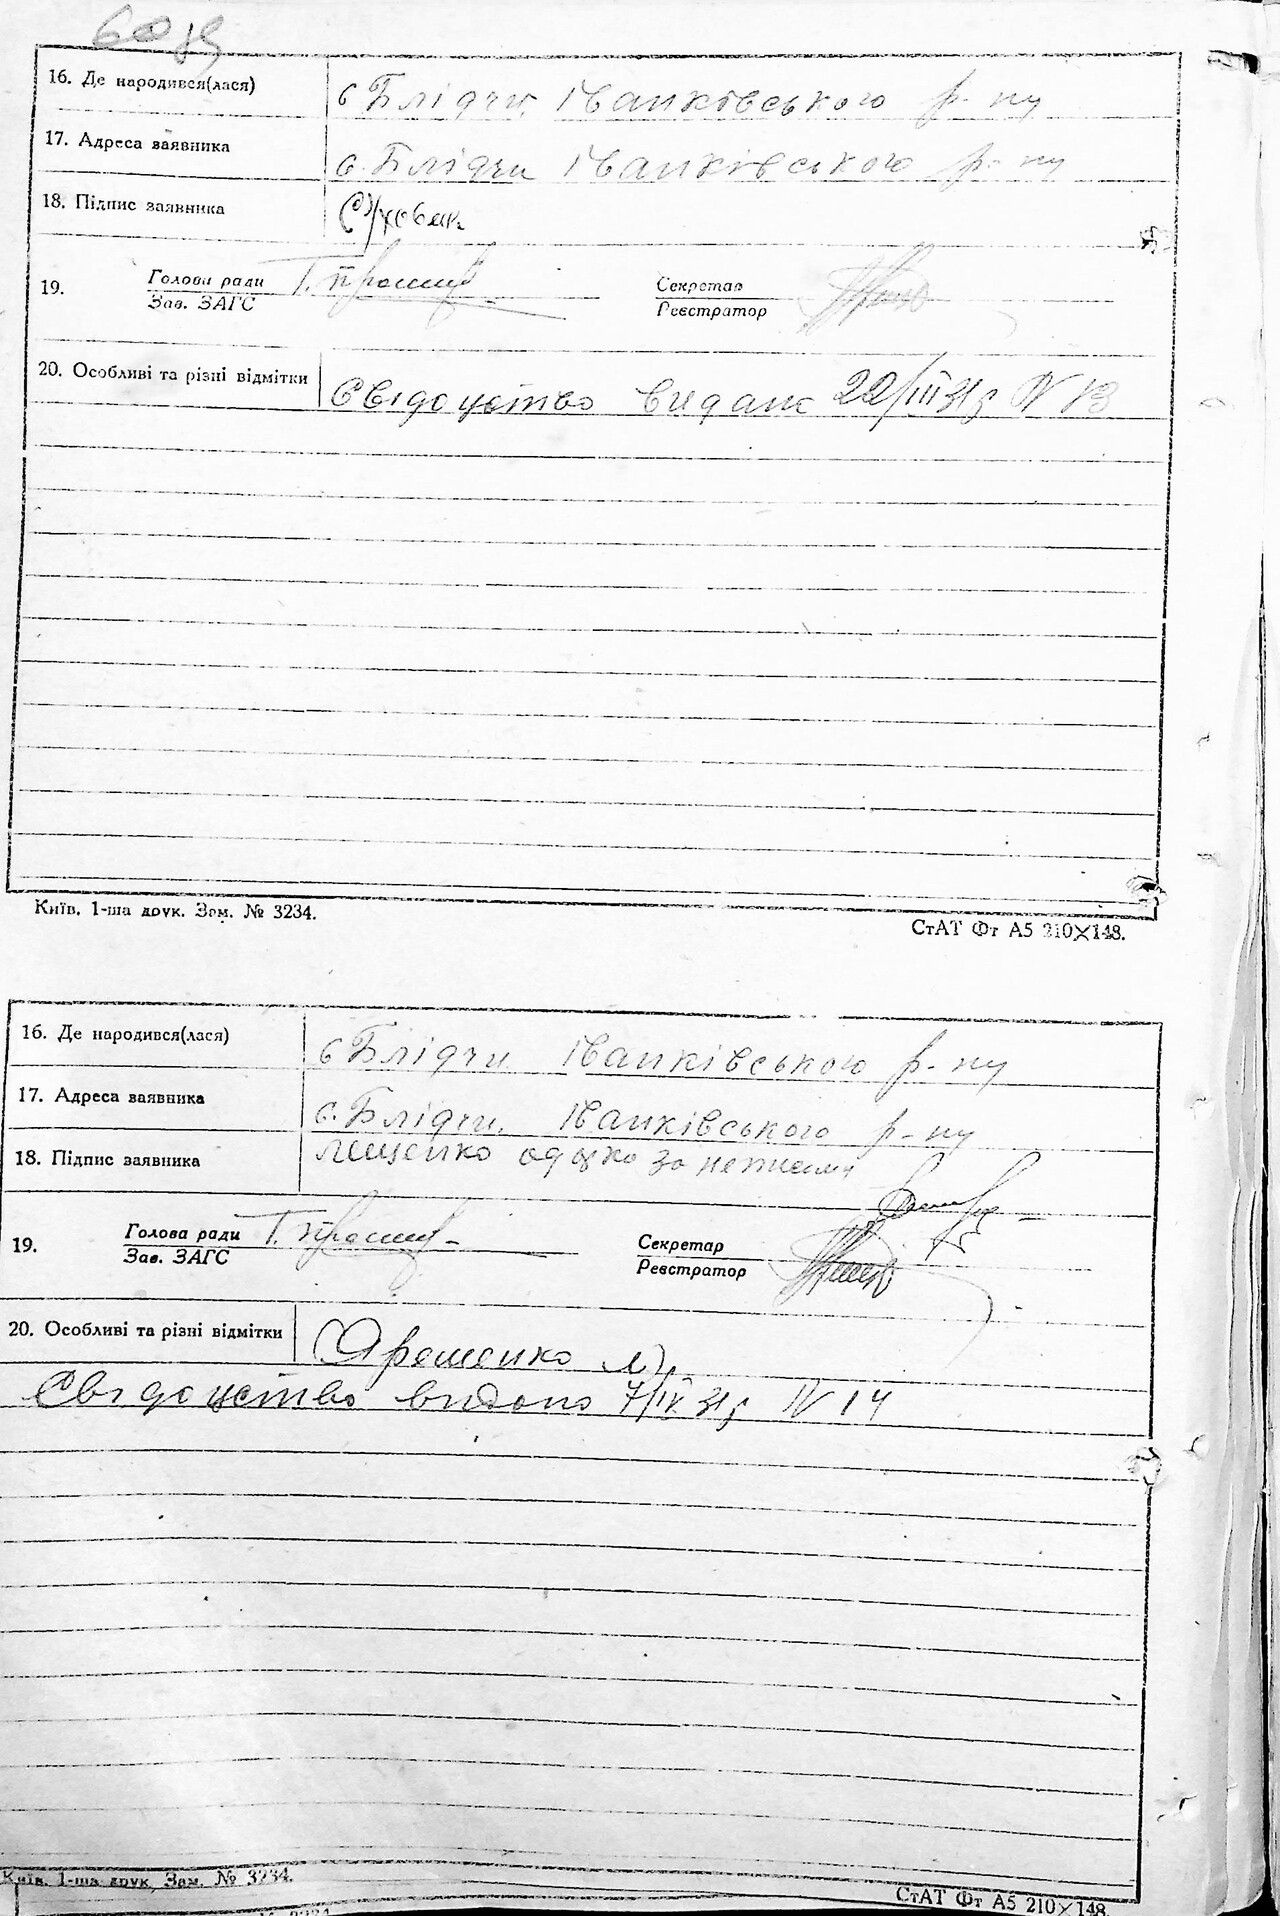 16. Де народився(лася) с Блідчи, Іванківського р-ну
17. Адреса заявника с. Блідчи Іванківського р-ну
18. Підпис заявника
19. Голова ради Секретар
Зав. ЗАГС Реєстратор
20. Особливі та різні відмітки Свідоцтво видано 22/III 31р N 13
Київ. 1-ша друк. Зам. № 3234.
СтАТ Фт А5 210×148.
16. Де народився(лася) с Блідчи Іванківського р-ну
17. Адреса заявника с. Блідчи, Іванківського р-ну
18. Підпис заявника за неписьм
19. Голова ради Секретар
Зав. ЗАГС Реєстратор
20. Особливі та різні відмітки Ярошенко
Свідоцтво видано 7/IV 31р N 14
Київ. 1-ша друк. Зам. № 3234.
СтАТ Фт А5 210×148.